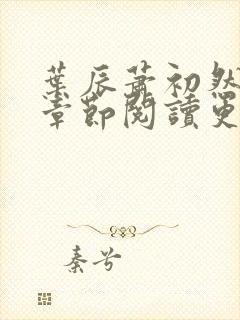 葉辰蕭初然
章節閱讀更
秦兮